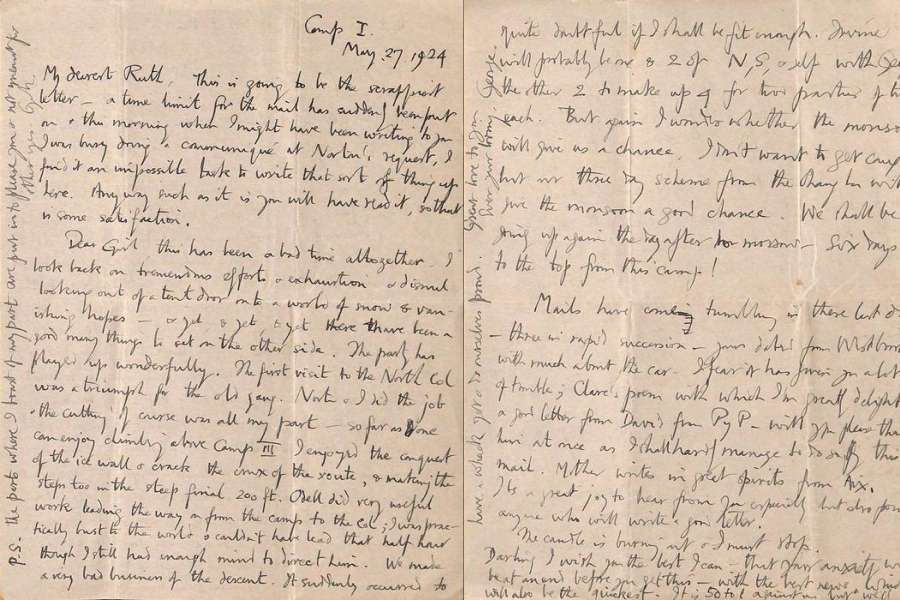 Camp I.
May. 27, 1924
My dearest Ruth, This is going to be the scrappiest
letter — a time limit for the mail has suddenly been put
on & this morning when I might have been writing to you
I was busy doing a communiqué at Norton's request, I
find it an impossible task to write that sort of thing up
here. Anyway such as it is you will have read it, so that
is some satisfaction.
Dear Girl this has been a bad time altogether. I
look back on tremendous efforts & exhaustion & dismal
looking out of a tent door onto a world of snow & van-
ishing hopes — & yet & yet & yet there have been a
good many things to set on the other side. The party has
played up wonderfully. The first visit to the North Col
was a triumph for the old gang. Norton & I did the job
& the cutting of course was all my part — so far as one
can enjoy climbing above Camp III I enjoyed the conquest
of the ice wall & crack the crux of the route, & making the
steps too in the steep final 200 ft. Odell did very useful
work leading the way on from the camp to the Col; I was prac-
tically bust to the world & couldn't have lead that half hour
though I still had enough mind to direct him. We made
a very bad business of the descent. It suddenly occurred to
P.S. the parts where I boast of my part are put in to please you & not meant for
other eyes. G.M.
quite doubtful if I shall be fit enough. Irvine
will probably be one & 2 of N, S, & self with
the other 2 to make up 4 for two parties of
each. But again I wonder whether the
will give us a chance. I don't want to get
but our three day scheme from the
give the monsoon a good chance. We shall be
going up again the day after to morrow — Six days
to the top from this camp!
Mails have come tumbling in these last
— three in rapid succession — yours dated from
with much about the car. I fear it has given you a lot
of trouble; Clare's poem with which I'm greatly
a good letter from David from PyP — will you please
him at once as I shall hardly manage to do so by this
mail. Mother writes in great spirits from Aix.
It's a great joy to hear from you especially but also from
anyone who will write a good letter.
The candle is burning out & I must stop.
Darling I wish you the best I can — that your anxiety
be at an end before you get this — with the best news
will also be the quickest. It is 50 to 1 against us but we'll
have a whack yet & do ourselves proud. Great love to you.
Ever your loving, George.